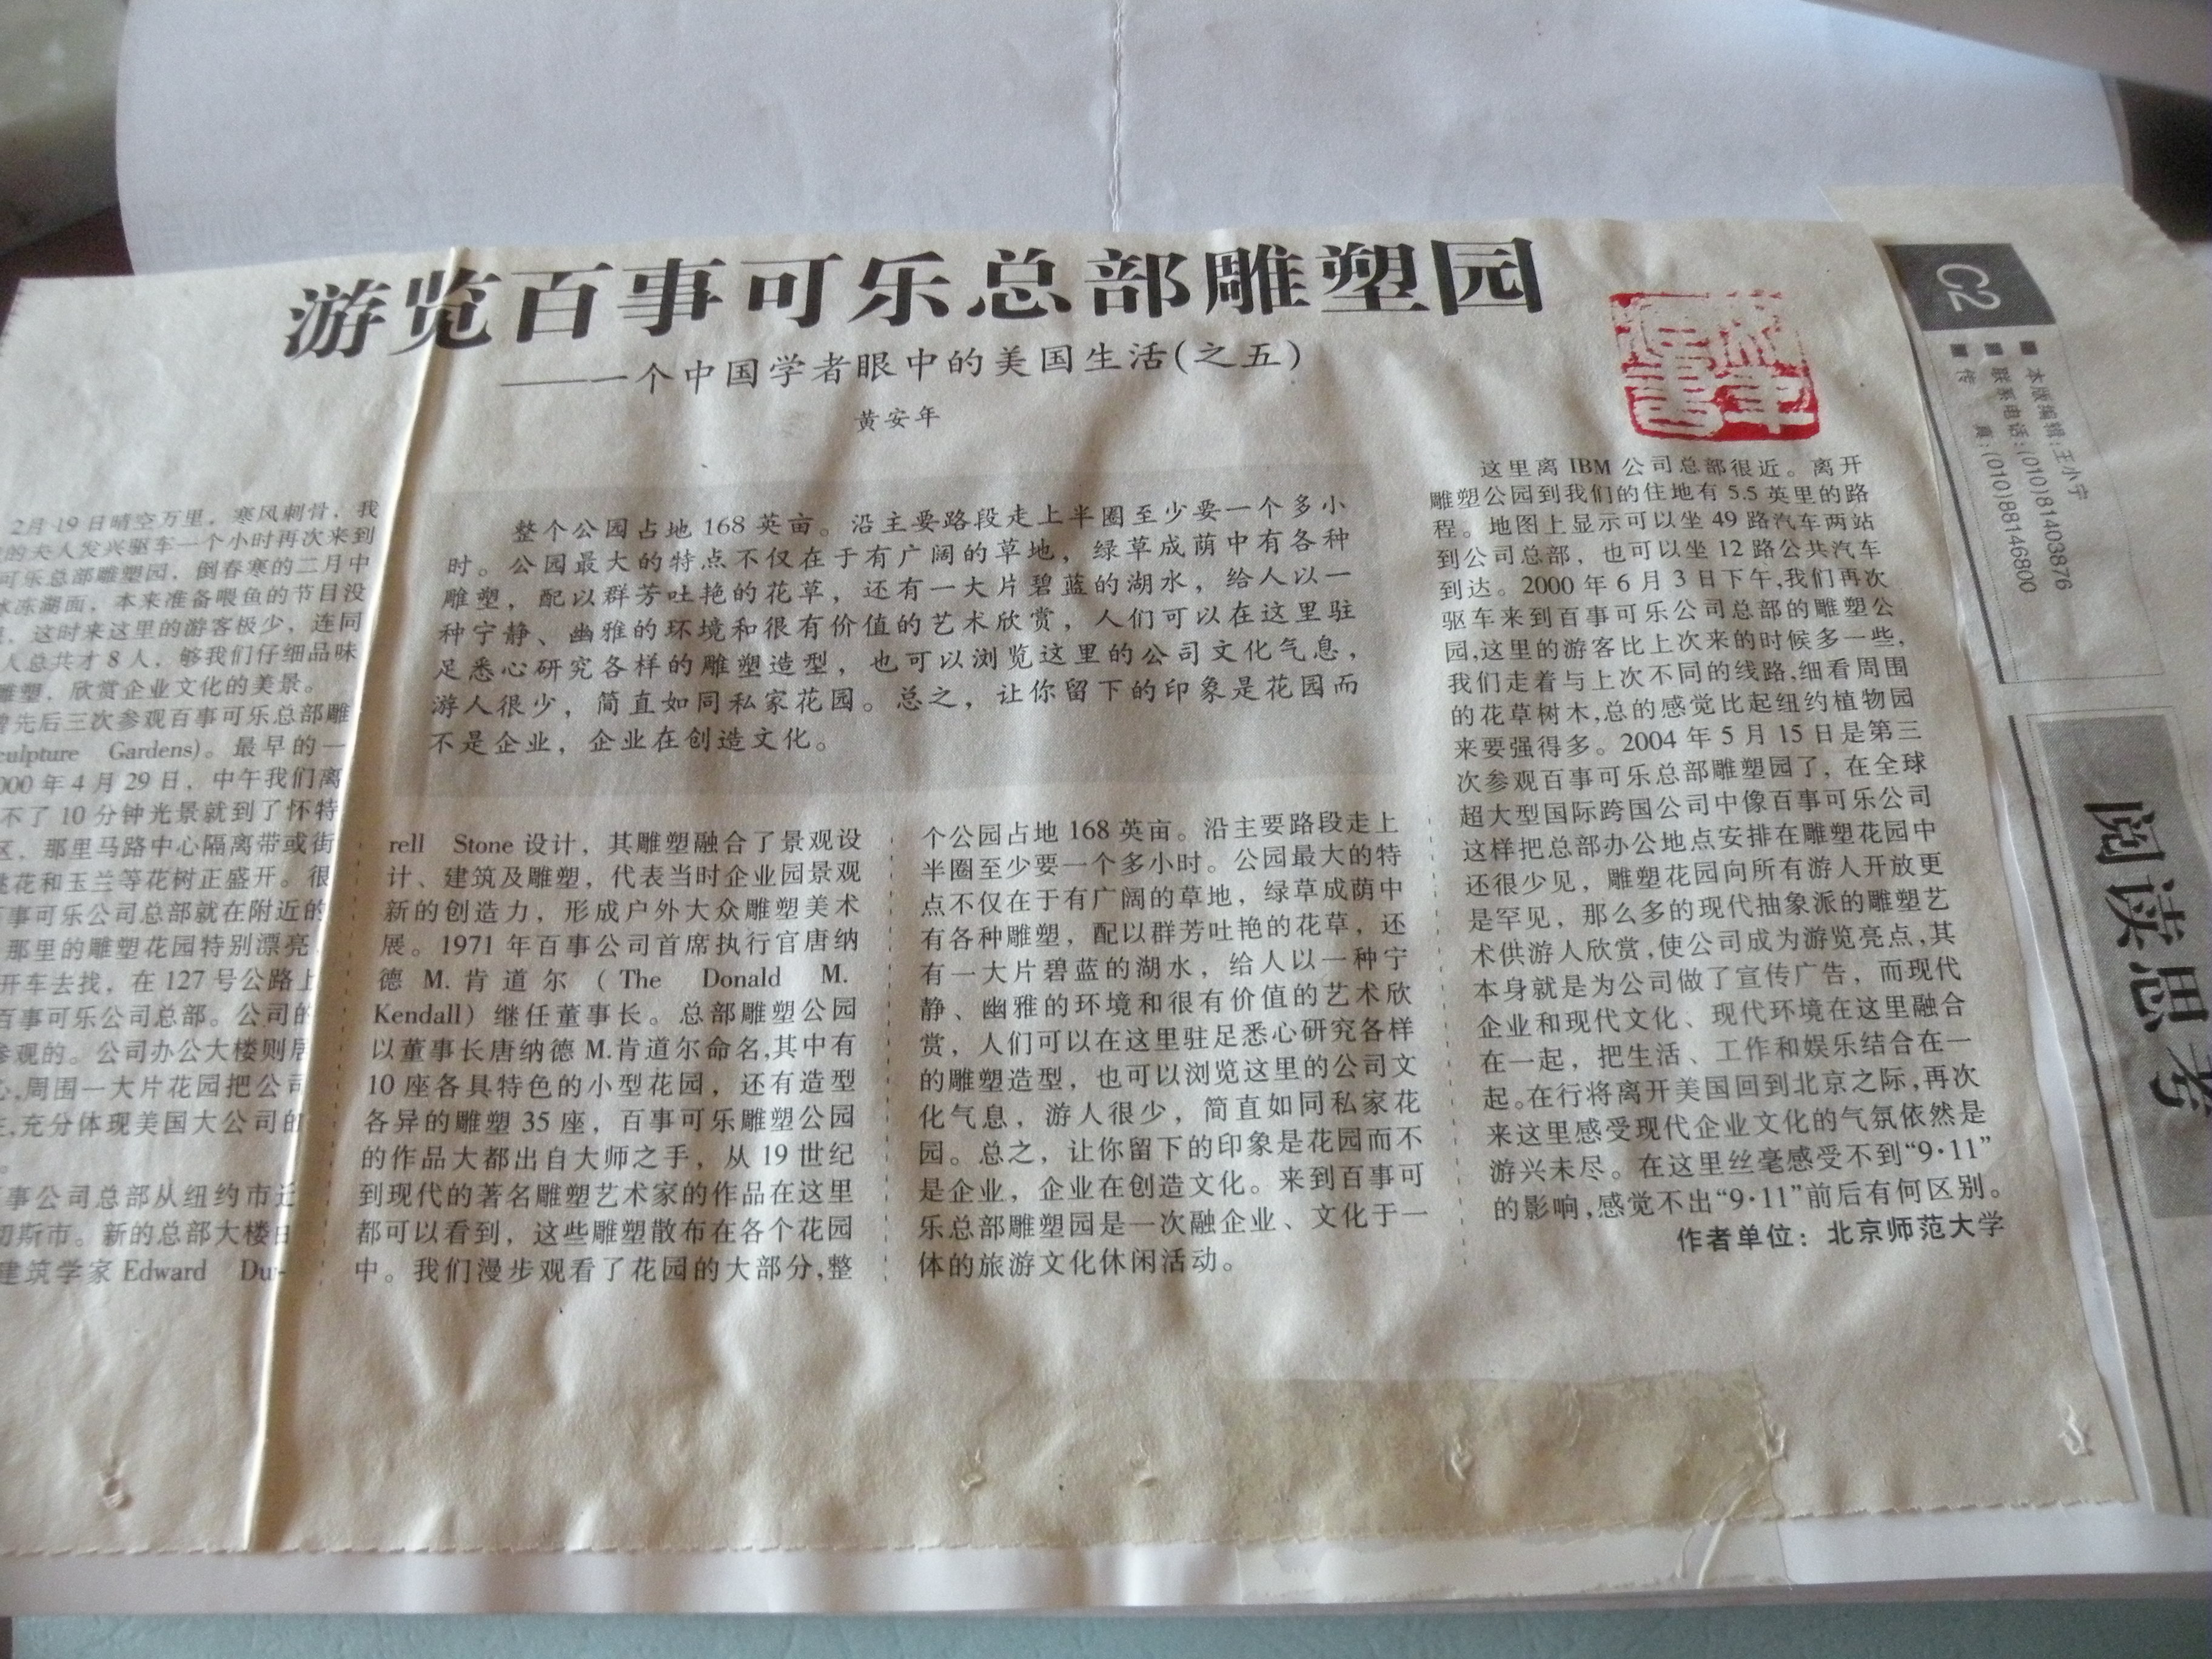 游览百事可乐总部雕塑园
——一个中国学者眼中的美国生活(之五)
黄安年
2月19日晴空万里，寒风刺骨，我
的夫人发兴驱车一个小时再次来到
可乐总部雕塑园，倒春寒的二月中
冰冻湖面，本来准备喂鱼的节目没
，这时来这里的游客极少，连同
人总共才8人，够我们仔细品味
雕塑，欣赏企业文化的美景。
曾先后三次参观百事可乐总部雕
culpture Gardens)。最早的一
000年4月29日，中午我们离
不了10分钟光景就到了怀特
区，那里马路中心隔离带或街
桃花和玉兰等花树正盛开。很
事可乐公司总部就在附近的
那里的雕塑花园特别漂亮
开车去找，在127号公路上
百事可乐公司总部。公司的
参观的。公司办公大楼则居
心,周围一大片花园把公司
,充分体现美国大公司的
。
事公司总部从纽约市迁
切斯市。新的总部大楼由
建筑学家Edward Du-
整个公园占地168英亩。沿主要路段走上半圈至少要一个多小
时。公园最大的特点不仅在于有广阔的草地，绿草成荫中有各种
雕塑，配以群芳吐艳的花草，还有一大片碧蓝的湖水，给人以一
种宁静、幽雅的环境和很有价值的艺术欣赏，人们可以在这里驻
足悉心研究各样的雕塑造型，也可以浏览这里的公司文化气息，
游人很少，简直如同私家花园。总之，让你留下的印象是花园而
不是企业，企业在创造文化。
rell Stone设计，其雕塑融合了景观设
计、建筑及雕塑，代表当时企业园景观
新的创造力，形成户外大众雕塑美术
展。1971年百事公司首席执行官唐纳
德M.肯道尔(The Donald M.
Kendall)继任董事长。总部雕塑公园
以董事长唐纳德M.肯道尔命名,其中有
10座各具特色的小型花园，还有造型
各异的雕塑35座，百事可乐雕塑公园
的作品大都出自大师之手，从19世纪
到现代的著名雕塑艺术家的作品在这里
都可以看到，这些雕塑散布在各个花园
中。我们漫步观看了花园的大部分,整
个公园占地168英亩。沿主要路段走上
半圈至少要一个多小时。公园最大的特
点不仅在于有广阔的草地，绿草成荫中
有各种雕塑，配以群芳吐艳的花草，还
有一大片碧蓝的湖水，给人以一种宁
静、幽雅的环境和很有价值的艺术欣
赏，人们可以在这里驻足悉心研究各样
的雕塑造型，也可以浏览这里的公司文
化气息，游人很少，简直如同私家花
园。总之，让你留下的印象是花园而不
是企业，企业在创造文化。来到百事可
乐总部雕塑园是一次融企业、文化于一
体的旅游文化休闲活动。
这里离IBM公司总部很近。离开
雕塑公园到我们的住地有5.5英里的路
程。地图上显示可以坐49路汽车两站
到公司总部，也可以坐12路公共汽车
到达。2000年6月3日下午,我们再次
驱车来到百事可乐公司总部的雕塑公
园,这里的游客比上次来的时候多一些,
我们走着与上次不同的线路,细看周围
的花草树木,总的感觉比起纽约植物园
来要强得多。2004年5月15日是第三
次参观百事可乐总部雕塑园了，在全球
超大型国际跨国公司中像百事可乐公司
这样把总部办公地点安排在雕塑花园中
还很少见，雕塑花园向所有游人开放更
是罕见，那么多的现代抽象派的雕塑艺
术供游人欣赏,使公司成为游览亮点,其
本身就是为公司做了宣传广告，而现代
企业和现代文化、现代环境在这里融合
在一起，把生活、工作和娱乐结合在一
起。在行将离开美国回到北京之际,再次
来这里感受现代企业文化的气氛依然是
游兴未尽。在这里丝毫感受不到“9·11”
的影响,感觉不出“9·11”前后有何区别。
作者单位：北京师范大学
C2
■本版编辑:王小宁
■联系电话:(010)81403876
■传 真:(010)88146800
阅读思考